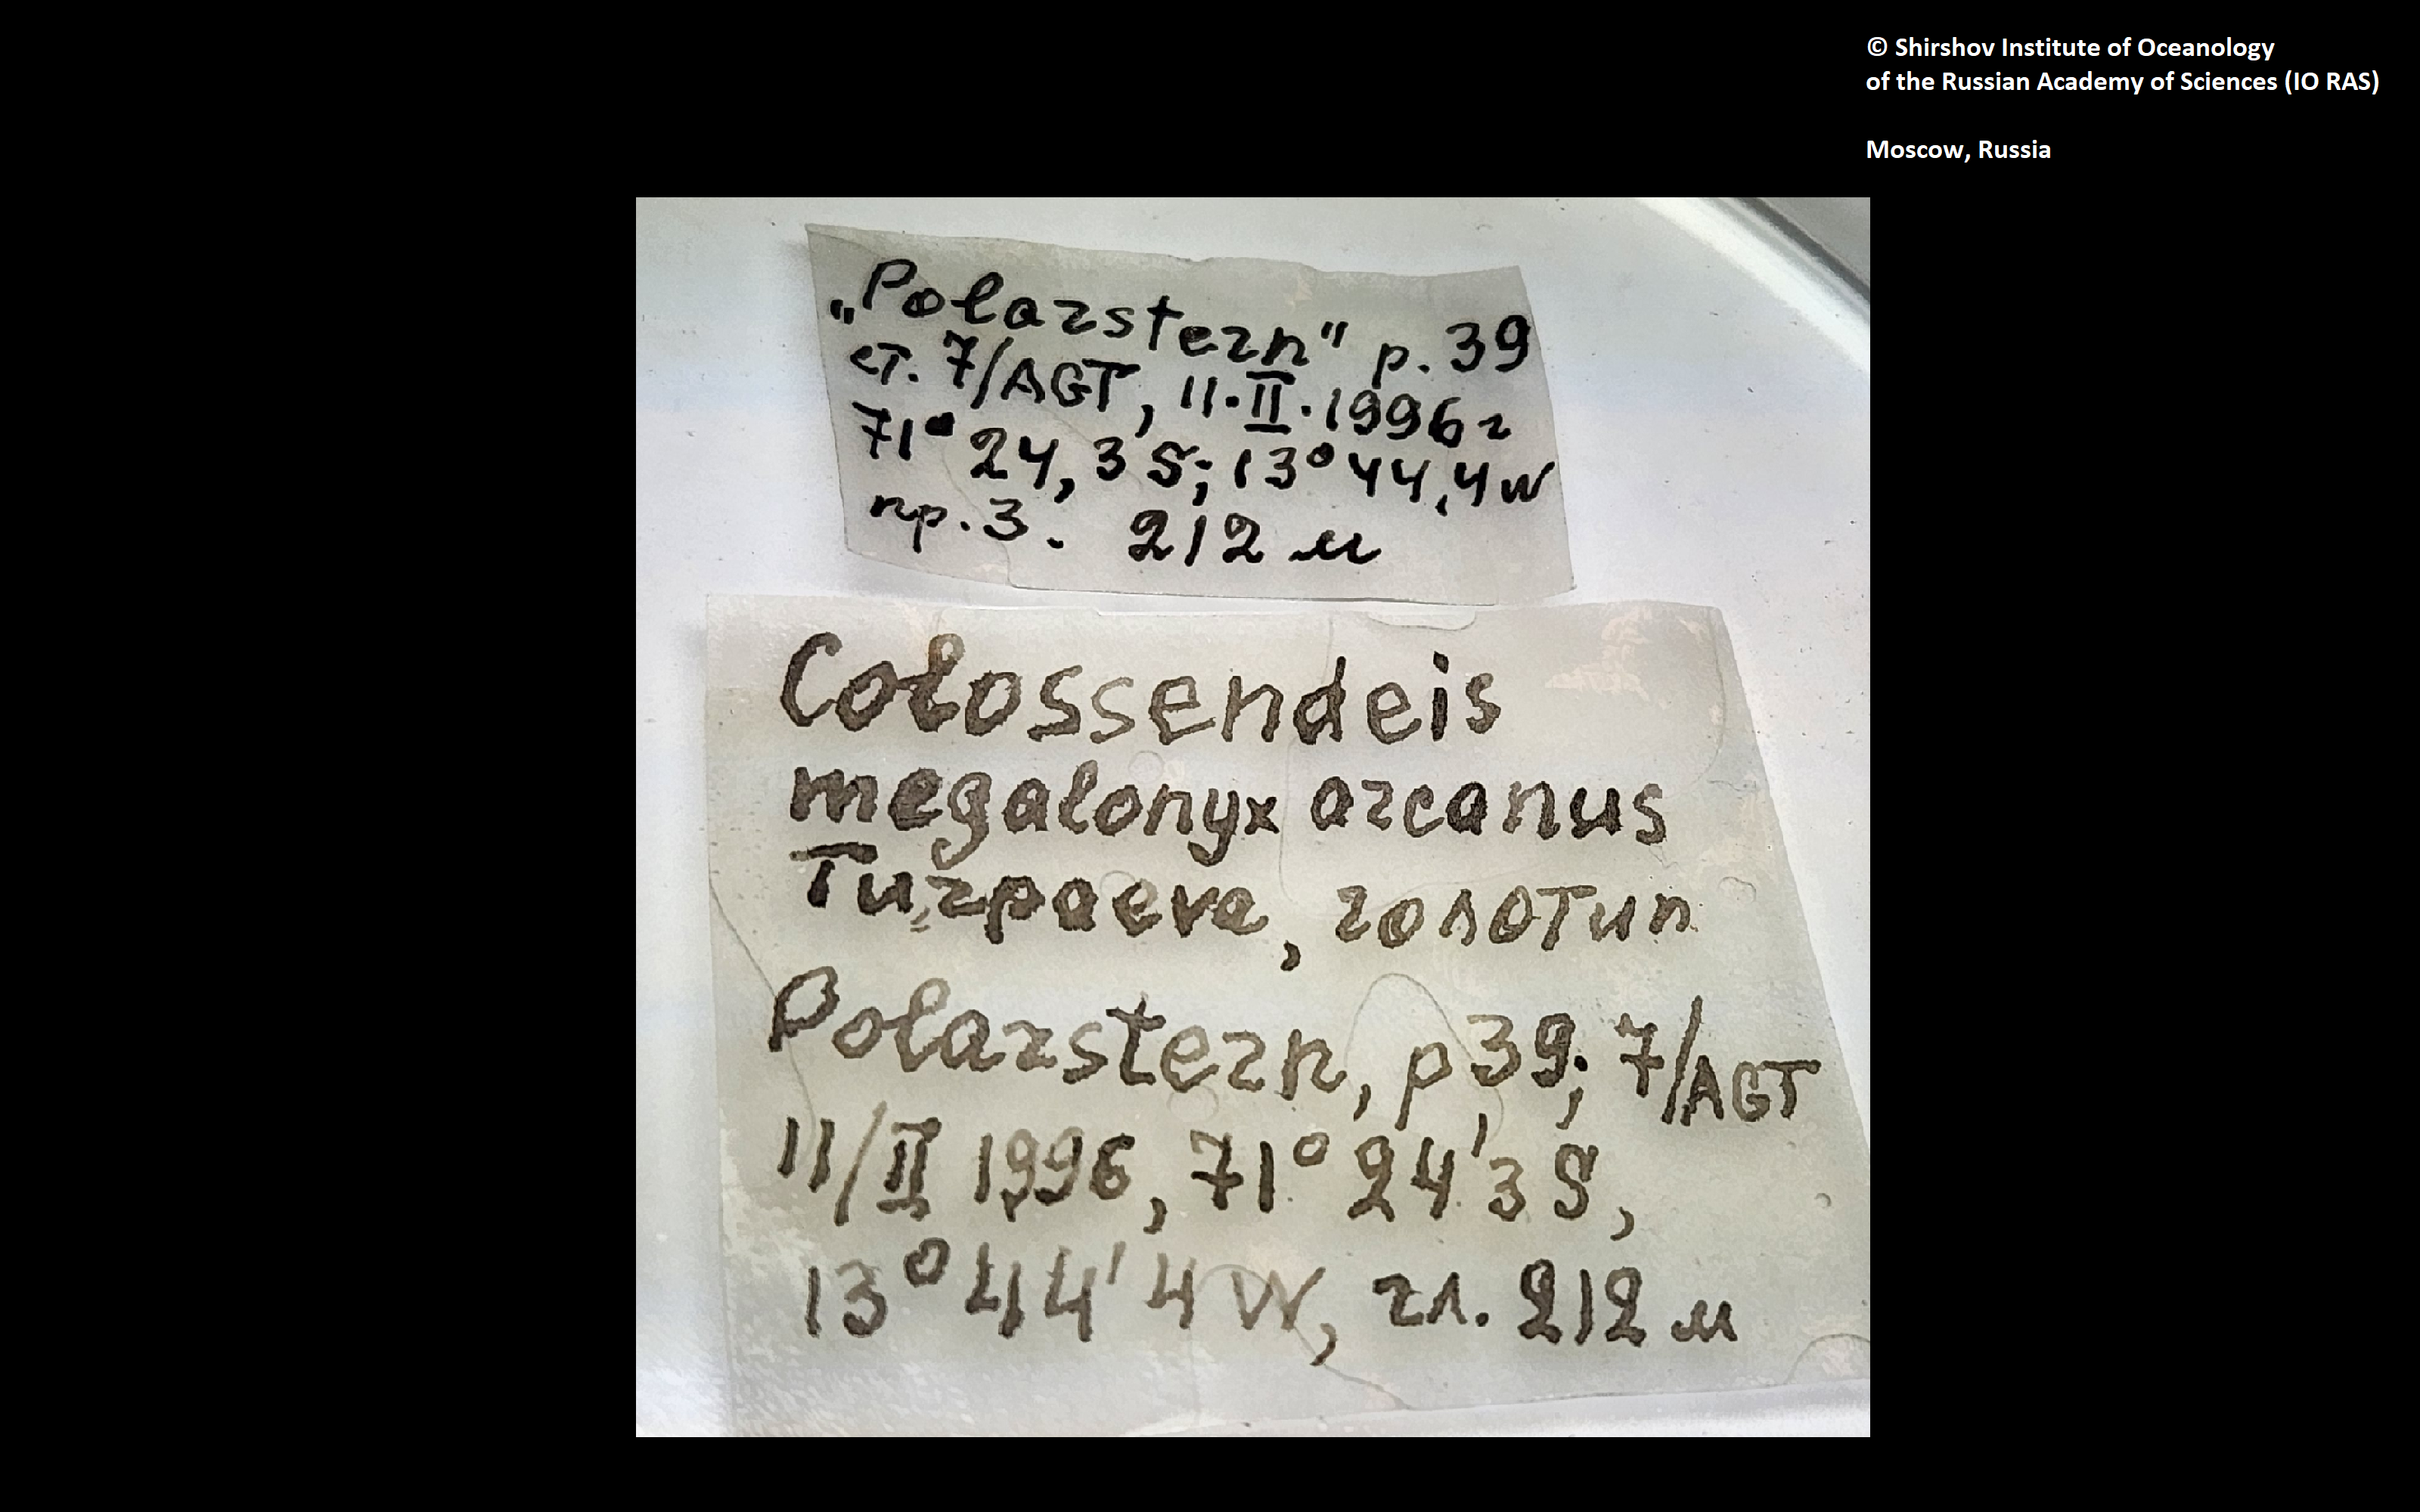 © Shirshov Institute of Oceanology
of the Russian Academy of Sciences (IO RAS)
Moscow, Russia
„Polarstern" р. 39
ст. 7/AGT, 11·II·1996 г
71° 24,3 S; 13° 44,4 W
пр. 3. 212 м
Colossendeis
megalonyx arcanus
Turpaeva, голотип
Polarstern, р 39; 7/AGT
11/II 1996, 71° 24'3 S,
13° 44' 4 W, гл. 212 м